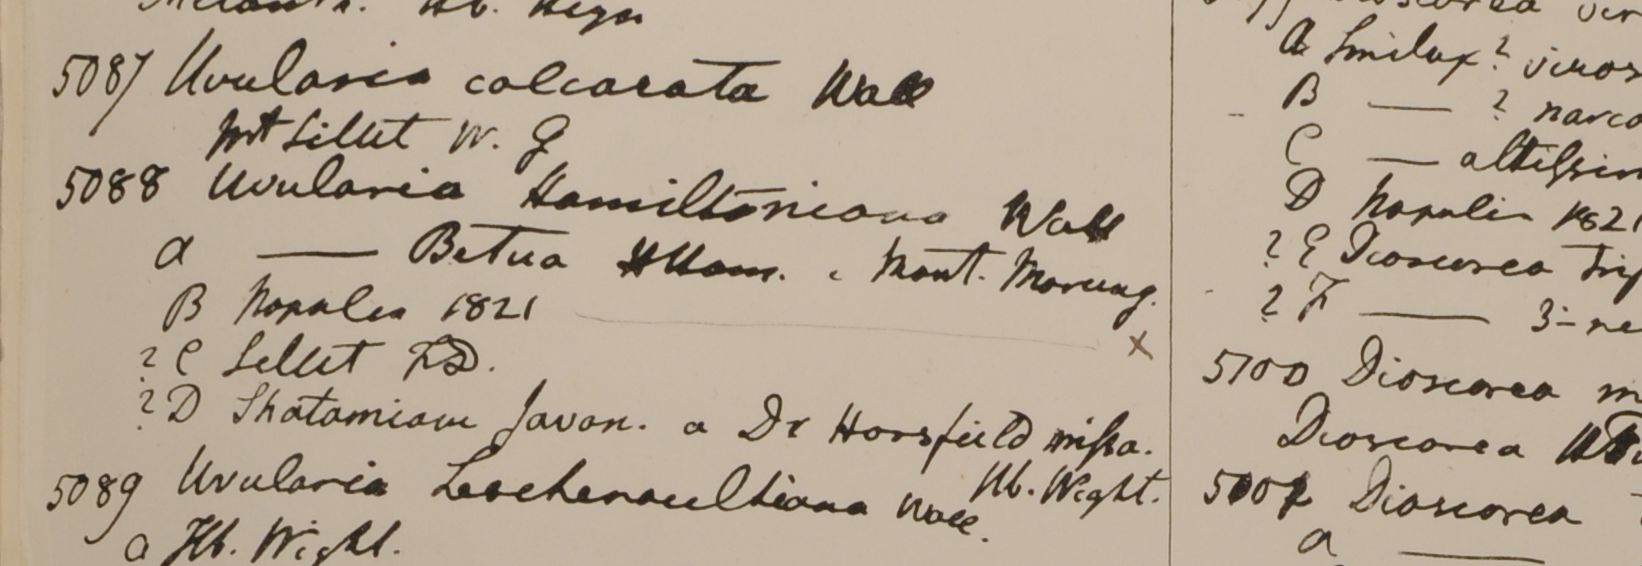 Hb. Heyn
5087 Uvularia calcarata Wall
Mt Sillet W. G
5088 Uvularia Hamiltoniana Wall
a — Betua HHam. e Mont. Morung.
B Napalia 1821
? C Sillet FD.
? D Javan. a Dr Horsfield missa.
5089 Uvularia Leschenaultiana Wall.
Hb. Wight.
a Hb. Wight.
a Smilax? viros
B — ? narco
C — altissim
D Napalia 1821
? E Dioscorea Trip
? F — 3-ne
5100 Dioscorea m
Dioscorea
Dioscorea
a —